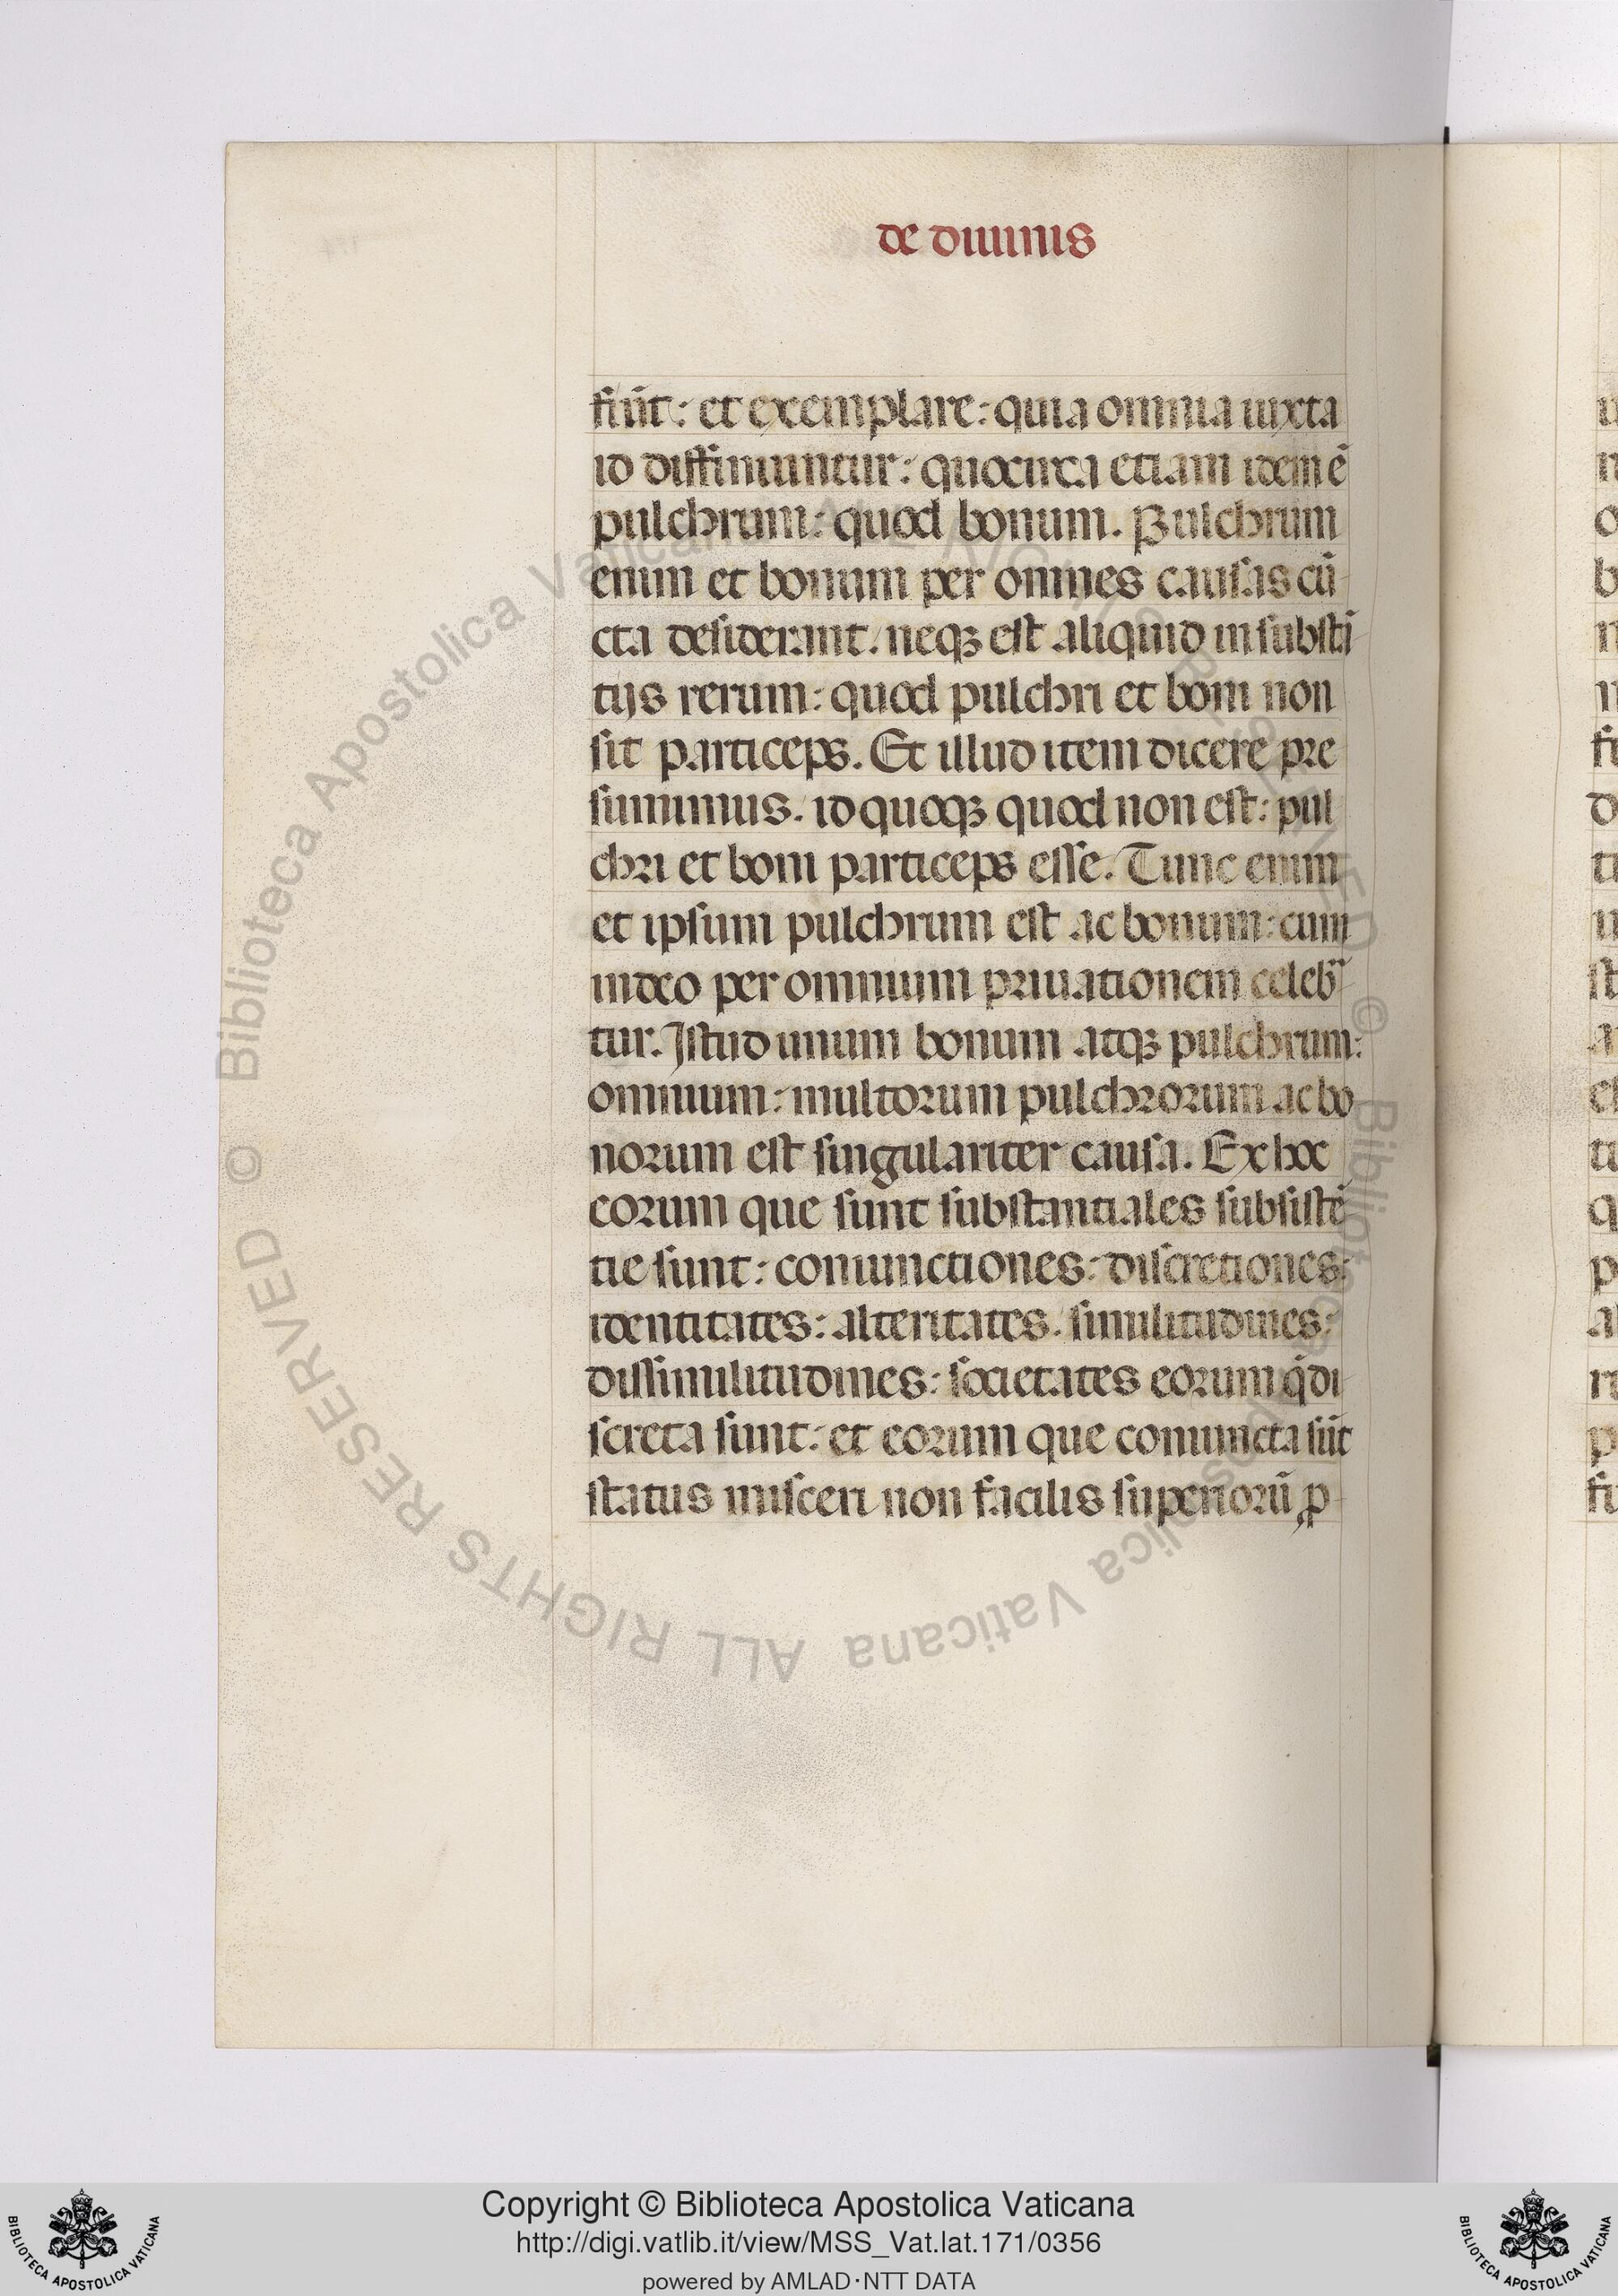 de diuinis
fiūt: et exemplare: quia omnia iuxta
id diffiniuntur: quocirca etiam idem ē
pulchrum: quod bonum. Pulchrum
enim et bonum per omnes causas cū
cta desiderant. neqꝫ est aliquid in substā
tijs rerum: quod pulchri et boni non
sit particeps. Et illud item dicere pre
sumimus. id quoqꝫ quod non est: pul
chri et boni particeps esse. Tunc enim
et ipsum pulchrum est ac bonum: cum
in deo per omnium priuationem celebra
tur. Istud unum bonum atqꝫ pulchrum:
omnium: multorum pulchrorum ac bo
norum est singulariter causa. Ex hoc
eorum que sunt substantiales subsistē
tie sunt: coniunctiones: discretiones:
identitates: alteritates. similitudines:
dissimilitudines: societates eorum q̄ di
screta sunt: et eorum que coniuncta sūt
status misceri non facilis superiorū ꝓ
Biblioteca Apostolica Vaticana ALL RIGHTS RESERVED © Biblioteca Apostolica Vaticana ALL RIGHTS RESERVED ©
Copyright © Biblioteca Apostolica Vaticana
http://digi.vatlib.it/view/MSS_Vat.lat.171/0356
powered by AMLAD·NTT DATA
BIBLIOTECA APOSTOLICA VATICANA
BIBLIOTECA APOSTOLICA VATICANA